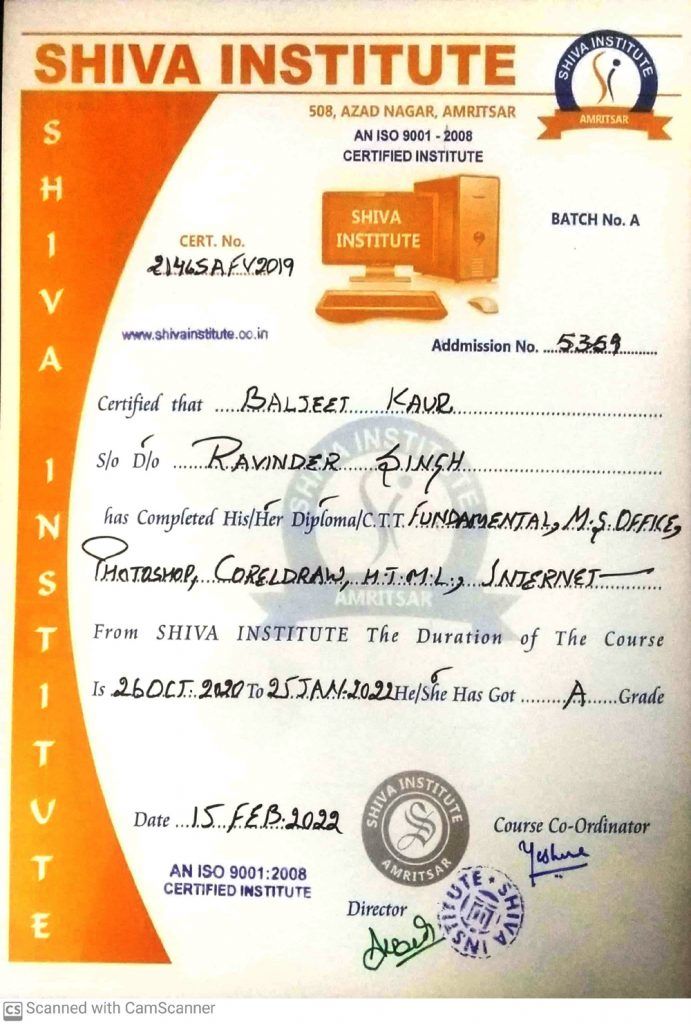 SHIVA INSTITUTE
SHIVA INSTITUTE
AMRITSAR
508, AZAD NAGAR, AMRITSAR
AN ISO 9001 - 2008
CERTIFIED INSTITUTE
SHIVA INSTITUTE
SHIVA
INSTITUTE
BATCH No. A
CERT. No.
2146SAFV2019
www.shivainstitute.co.in
Addmission No. ....5359............
Certified that .....BALJEET KAUR.....
S/o D/o .....RAVINDER SINGH.....
SHIVA INSTITUTE
has Completed His/Her Diploma/C.T.T. FUNDAMENTAL, M.S. OFFICE,
PHOTOSHOP, CORELDRAW, H.T.M.L., INTERNET
AMRITSAR
From SHIVA INSTITUTE The Duration of The Course
Is 26 OCT. 2020 To 25 JAN. 2022 He/She Has Got .........A......Grade
Date ...15 FEB. 2022
SHIVA INSTITUTE
AMRITSAR
Course Co-Ordinator
AN ISO 9001:2008
CERTIFIED INSTITUTE
Director
SHIVA INSTITUTE
CS Scanned with CamScanner